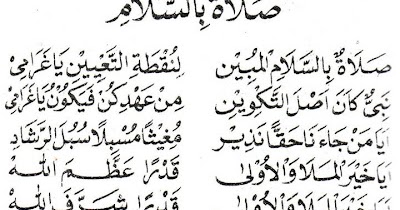 صَلَاةٌ بِالسَّلَامِ
صَلَاةٌ بِالسَّلَامِ الْمُبِيْنِ لِنُقْطَةِ التَّعْيِيْنِ يَاغَرَامِيْ
نَبِيٌّ كَانَ اَصْلَ التَّكْوِيْنِ مِنْ عَهْدِ كُنْ فَيَكُوْنُ يَاغَرَامِيْ
اَيَا مَنْ جَاءَنَا حَقًّا نَذِيْر مُغِيْثًا مُسْبِلًا سُبُلَ الرَّشَادِ
اَيَا خَيْرَ الْمَلَا وَالْاُوْلٰى قَدْرًا عَظَّمَ اللّٰه
اَيَا خَيْرَ الْمَلَا وَالْاُوْلٰى قَدْرًا شَرَّفَ اللّٰه